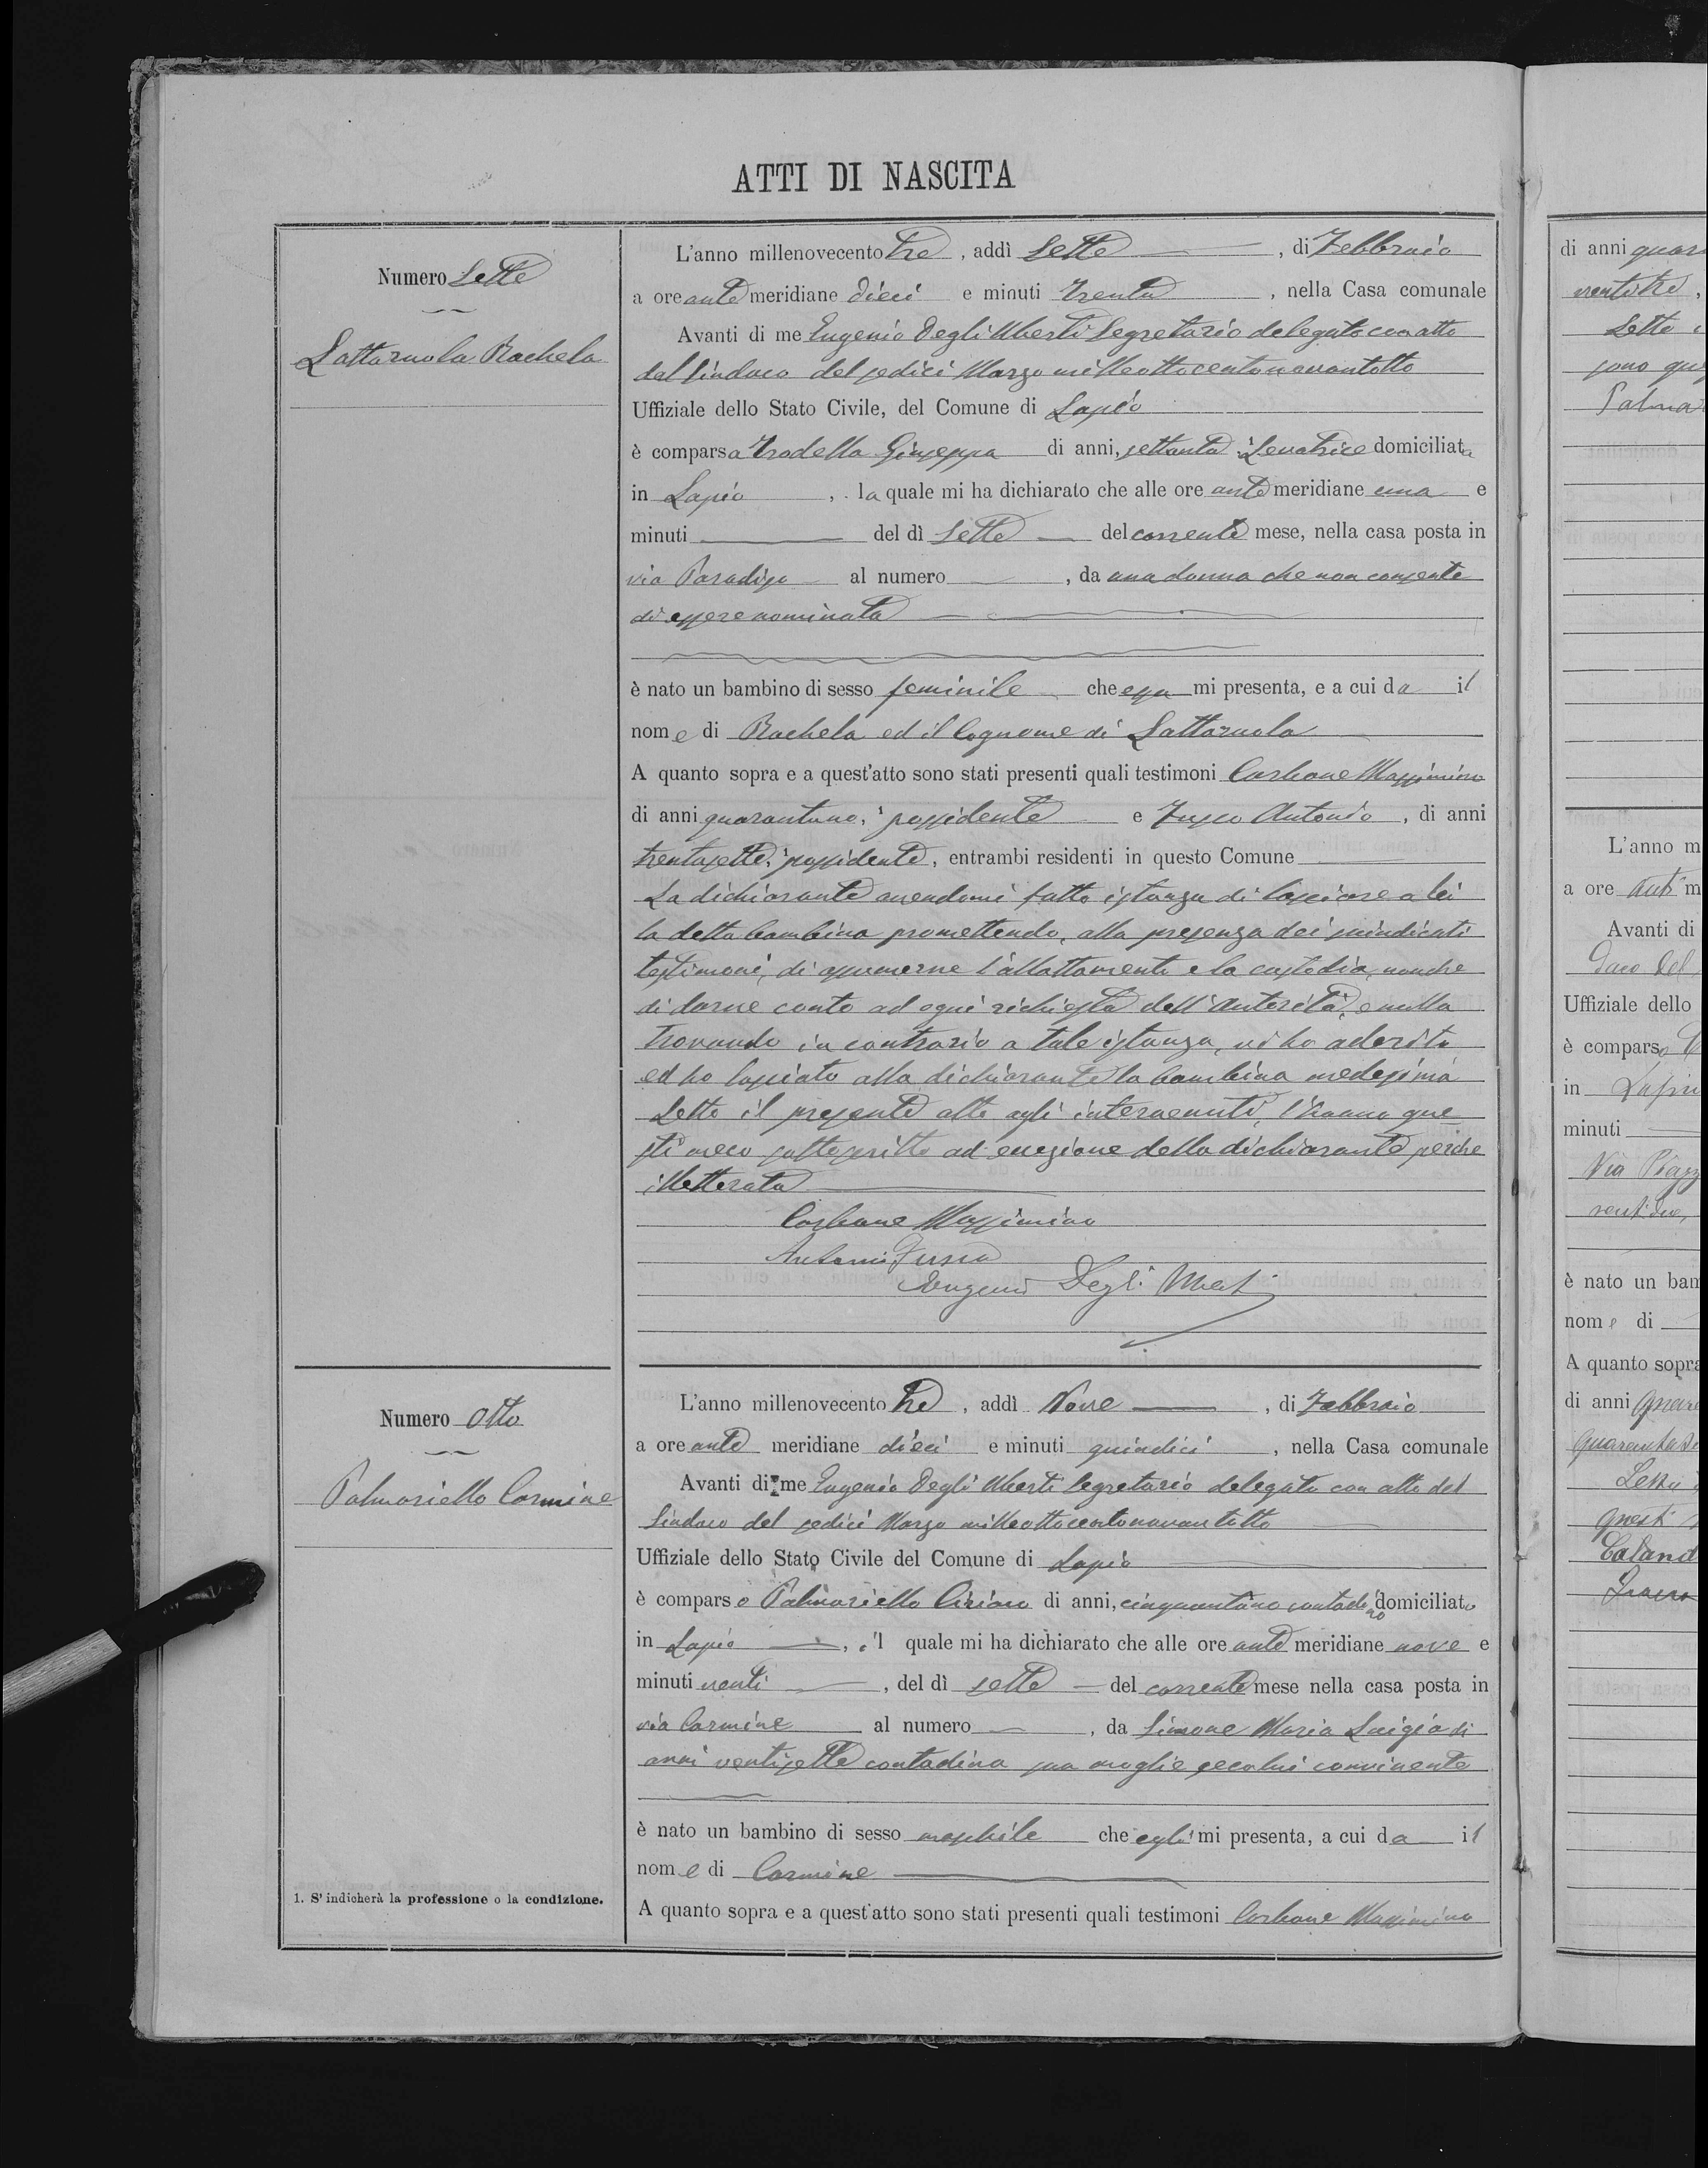 ATTI DI NASCITA
Numero Sette
Lattaruola Rachela
L'anno millenovecento tre, addì Sette, di Febbraio
a ore ante meridiane dieci e minuti trenta, nella Casa comunale
Avanti di me Eugenio Degli Uberti Segretario delegato con atto
del Sindaco del sedici Marzo milleottocentonovantotto
Uffiziale dello Stato Civile, del Comune di Lapio
è comparsa Trodella Giuseppa di anni, settanta Levatrice domiciliata
in Lapio, la quale mi ha dichiarato che alle ore ante meridiane una e
minuti del dì Sette del corrente mese, nella casa posta in
via Paradiso al numero , da una donna che non consente
di essere nominata
è nato un bambino di sesso feminile che essa mi presenta, e a cui da il
nome di Rachela ed il Cognome di Lattaruola
A quanto sopra e a quest'atto sono stati presenti quali testimoni Carbone Massimino
di anni quarantuno, possidente e Fusco Antonio, di anni
trentasette, possidente, entrambi residenti in questo Comune
La dichiarante avendomi fatto istanza di lasciare a lei
la detta bambina promettendo, alla presenza dei suindicati
testimoni, di assumerne l'allattamento e la custodia, nonche
di darne conto ad ogni richiesta dell'Autorità, e nulla
trovando in contrario a tale istanza, vi ho aderito
ed ho lasciato alla dichiarante la bambina medesima
Letto il presente atto agli intervenuti, l'hanno que
sti meco sottoscritto ad eccezione della dichiarante perche
illetterata
Carbone Massimino
Antonio Fusco
Eugenio Degli Uberti
Numero Otto
Palmariello Carmine
L'anno millenovecento tre, addì Nove, di Febbraio
a ore ante meridiane dieci e minuti quindici, nella Casa comunale
Avanti di me Eugenio Degli Uberti Segretario delegato con atto del
Sindaco del sedici Marzo milleottocentonovantotto
Uffiziale dello Stato Civile del Comune di Lapio
è comparso Palmariello Ciriaco di anni, cinquantuno contadino domiciliato
in Lapio, il quale mi ha dichiarato che alle ore ante meridiane nove e
minuti venti, del dì sette del corrente mese nella casa posta in
via Carmine al numero , da Simone Maria Luigia di
anni ventisette contadina sua moglie secolui convivente
è nato un bambino di sesso maschile che egli mi presenta, a cui da il
nome di Carmine
A quanto sopra e a quest'atto sono stati presenti quali testimoni Carbone Massimino
1. S' indicherà la professione o la condizione.
di anni
ventitre,
Letto
sono
L'anno
a ore
Avanti di
Uffiziale dello
è comparso
in
minuti
Via
ventidue,
è nato un
nome di
A quanto
di anni